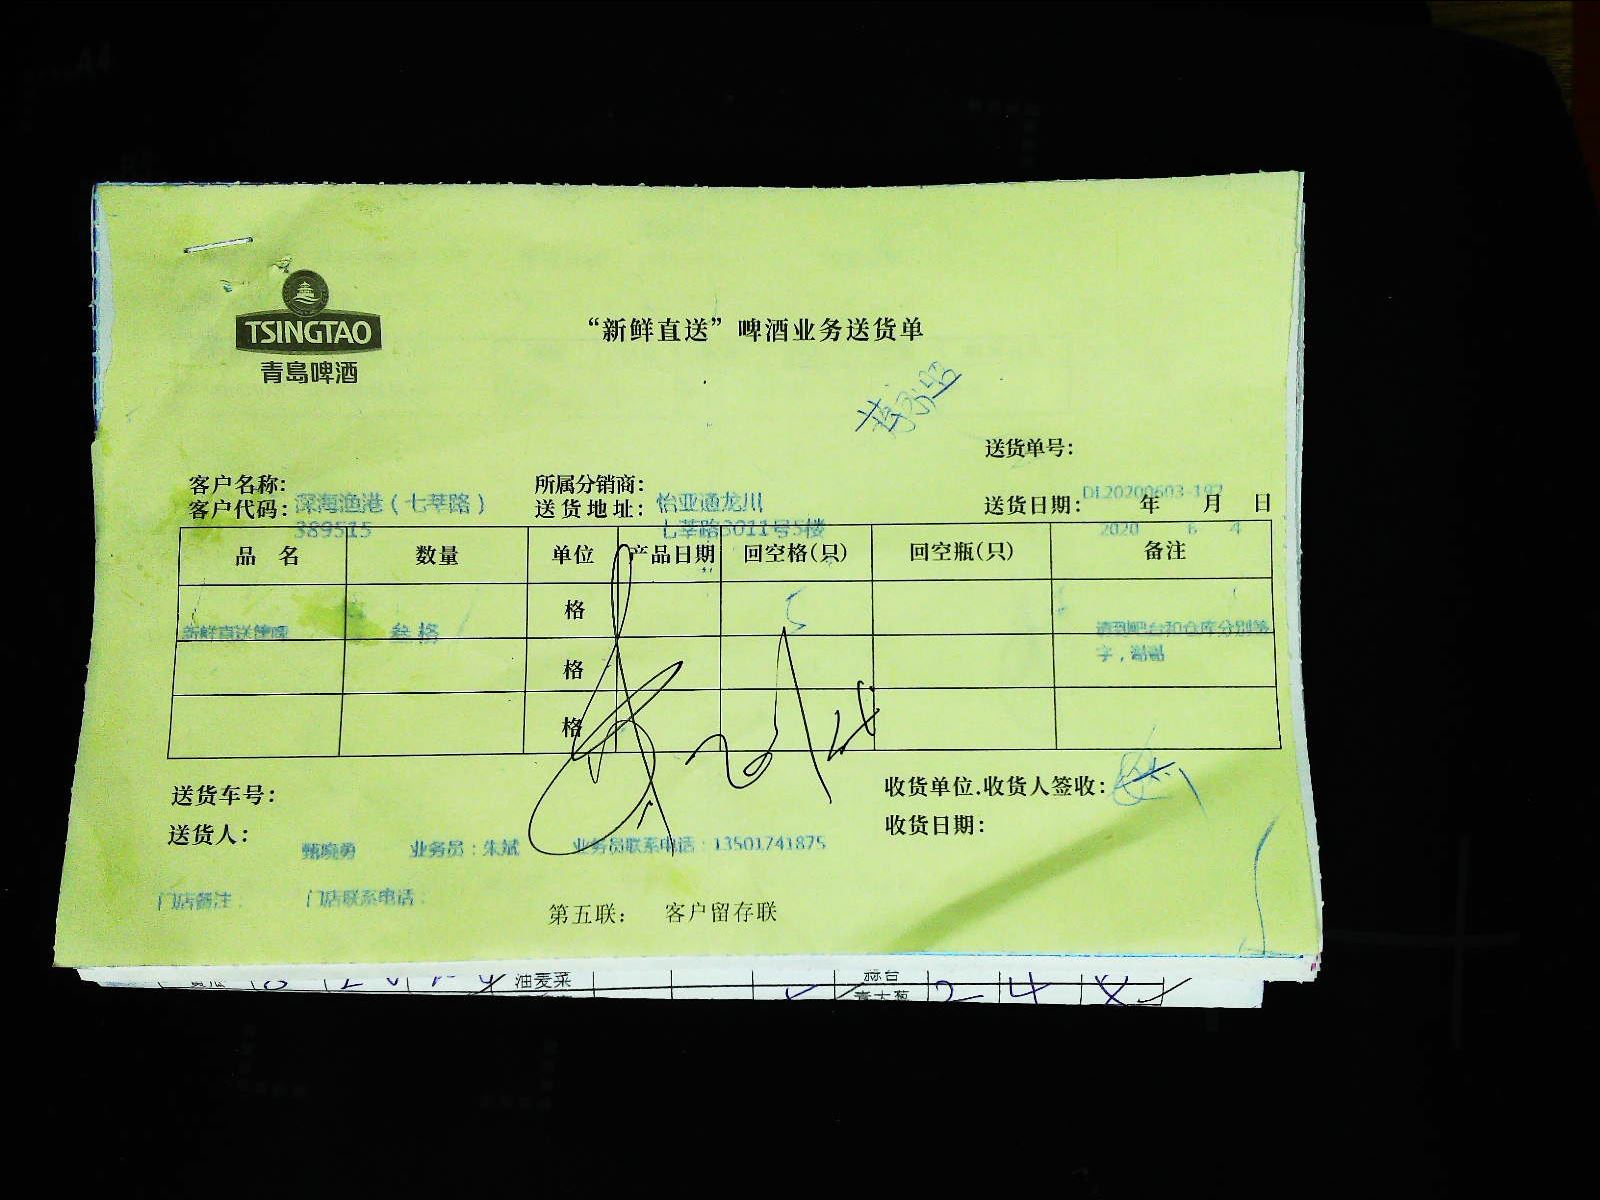 TSINGTAO
青島啤酒
“新鲜直送”啤酒业务送货单
送货单号：
DL20200603-197
客户名称： 深海渔港（七莘路） 所属分销商： 怡亚通龙川
客户代码： 389515 送货地址： 七莘路3011号5楼 送货日期： 2020 年 6 月 4 日
品名 数量 单位 产品日期 回空格(只) 回空瓶(只) 备注
新鲜直送 叁格 格 5 请到吧台和仓库分别签
字，谢谢
格
格
送货车号： 收货单位.收货人签收：
送货人： 甄晓勇 业务员：朱斌 业务员联系电话：13501741875 收货日期：
门店备注： 门店联系电话：
第五联： 客户留存联
油麦菜 蒜台
青大葱 2 4